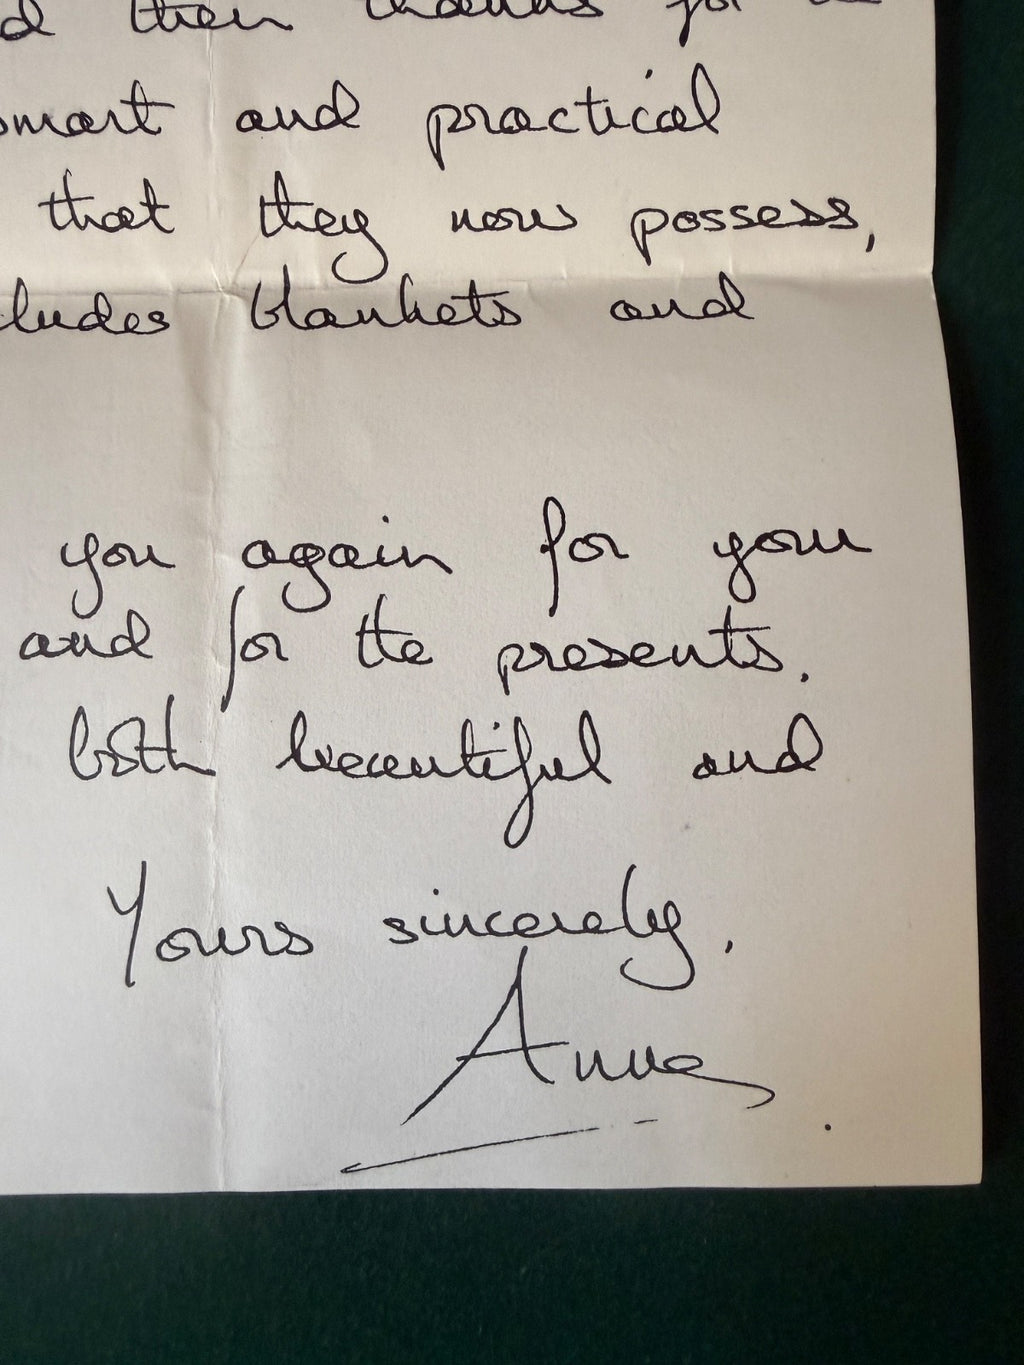 their thanks for
smart and practical
that they now possess,
cludes blankets and
you again for your
and for the presents.
both beautiful and
Yours sincerely,
Anne